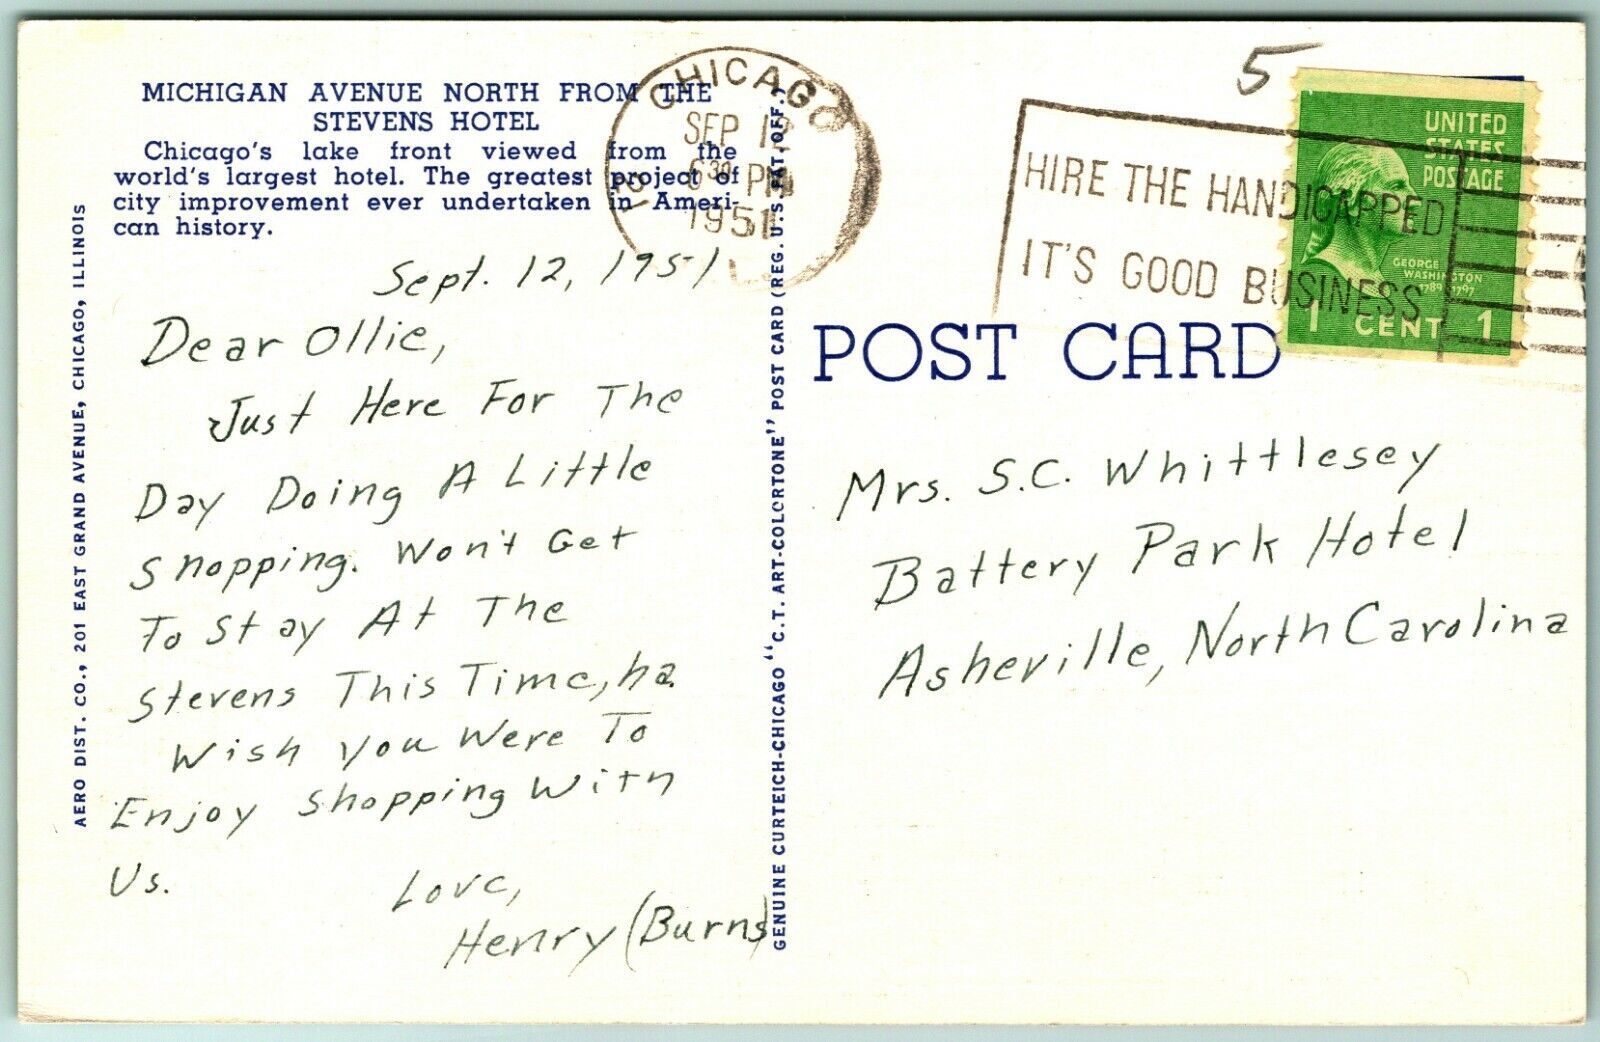 MICHIGAN AVENUE NORTH FROM THE
STEVENS HOTEL
Chicago's lake front viewed from the
world's largest hotel. The greatest project of
city improvement ever undertaken in Ameri-
can history.
AERO DIST. CO., 201 EAST GRAND AVENUE, CHICAGO, ILLINOIS
Sept. 12, 1951
Dear Ollie,
Just Here For The
Day Doing A Little
Shopping. Won't Get
To Stay At The
Stevens This Time, ha.
Wish You Were To
Enjoy Shopping With
Us.
Love,
Henry (Burns)
GENUINE CURTEICH-CHICAGO "C.T. ART-COLORTONE" POST CARD (REG. U.S. PAT. OFF.)
CHICAGO
SEP 12
6 30 PM
1951
12
5
HIRE THE HANDICAPPED
IT'S GOOD BUSINESS
UNITED
STATES
POSTAGE
GEORGE
WASHINGTON
1789 1797
1 CENT 1
POST CARD
Mrs. S.C. Whittlesey
Battery Park Hotel
Asheville, North Carolina